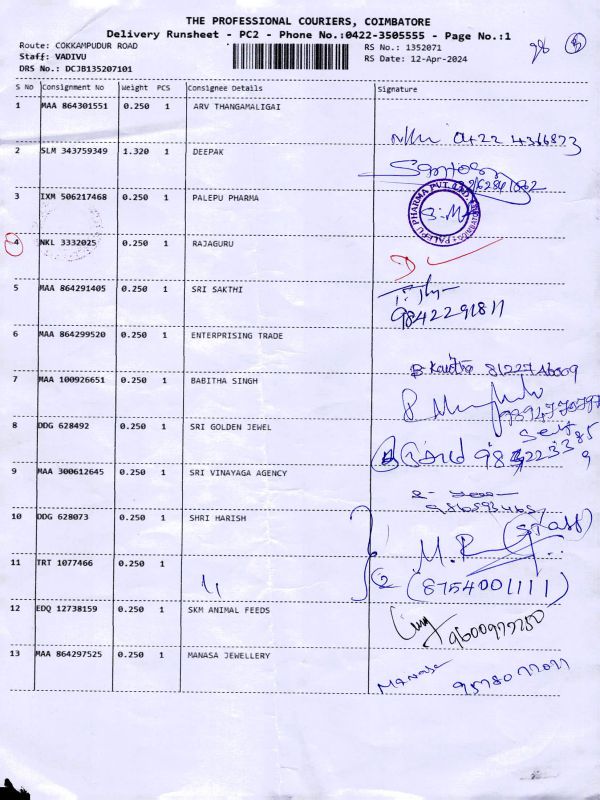 THE PROFESSIONAL COURIERS, COIMBATORE
Delivery Runsheet - PC2 - Phone No.:0422-3505555 - Page No.:1
Route: COKKAMPUDUR ROAD RS No.: 1352071
Staff: VADIVU RS Date: 12-Apr-2024
DRS No.: DCJB135207101
S No Consignment No Weight PCS Consignee Details Signature
1 MAA 864301551 0.250 1 ARV THANGAMALIGAI
0422 4366873
2 SLM 343759349 1.320 1 DEEPAK
3 IXM 506217468 0.250 1 PALEPU PHARMA
PALEPU PHARMA PVT LTD
4 NKL 3332025 0.250 1 RAJAGURU
D
5 MAA 864291405 0.250 1 SRI SAKTHI
9842291811
6 MAA 864299520 0.250 1 ENTERPRISING TRADE
7 MAA 100926651 0.250 1 BABITHA SINGH
8 DDG 628492 0.250 1 SRI GOLDEN JEWEL
Self
9 MAA 300612645 0.250 1 SRI VINAYAGA AGENCY
10 DDG 628073 0.250 1 SHRI HARISH
(STAFF)
11 TRT 1077466 0.250 1
2 (8754001111)
12 EDQ 12738159 0.250 1 SKM ANIMAL FEEDS
13 MAA 864297525 0.250 1 MANASA JEWELLERY
MANASA